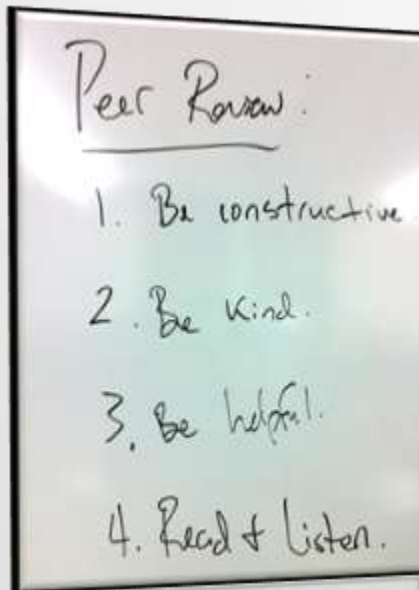 Peer Review:
1. Be constructive.
2. Be kind.
3. Be helpful.
4. Read + Listen.